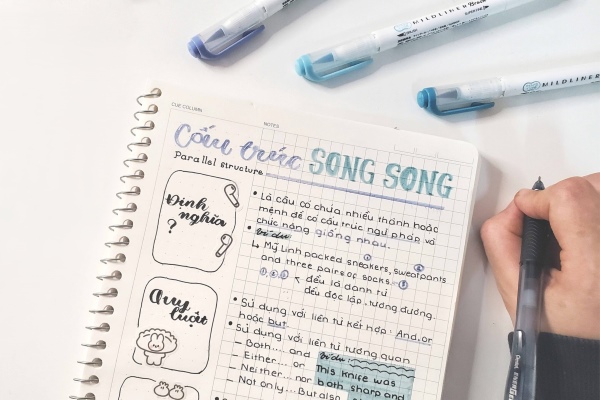 MILDLINER Brush
MILDLINER
CUE COLUMN
NOTES
Cấu trúc SONG SONG
Parallel structure
Định
nghĩa
?
• Là câu có chứa nhiều thành hoặc
mệnh đề có cấu trúc ngữ pháp và
chức năng giống nhau.
• Ví dụ:
↳ Mỹ Linh packed sneakers, sweatpants
and three pairs of socks.
① ② ③ ↖ đều là danh từ
đều độc lập, tương đương.
Quy
luật
• Sử dụng với liên từ kết hợp: And, or
hoặc but.
• Sử dụng với liên từ tương quan
– Both... and
– Either... or
– Neither... nor
– Not only... But also
Ví dụ:
This knife was
both sharp and